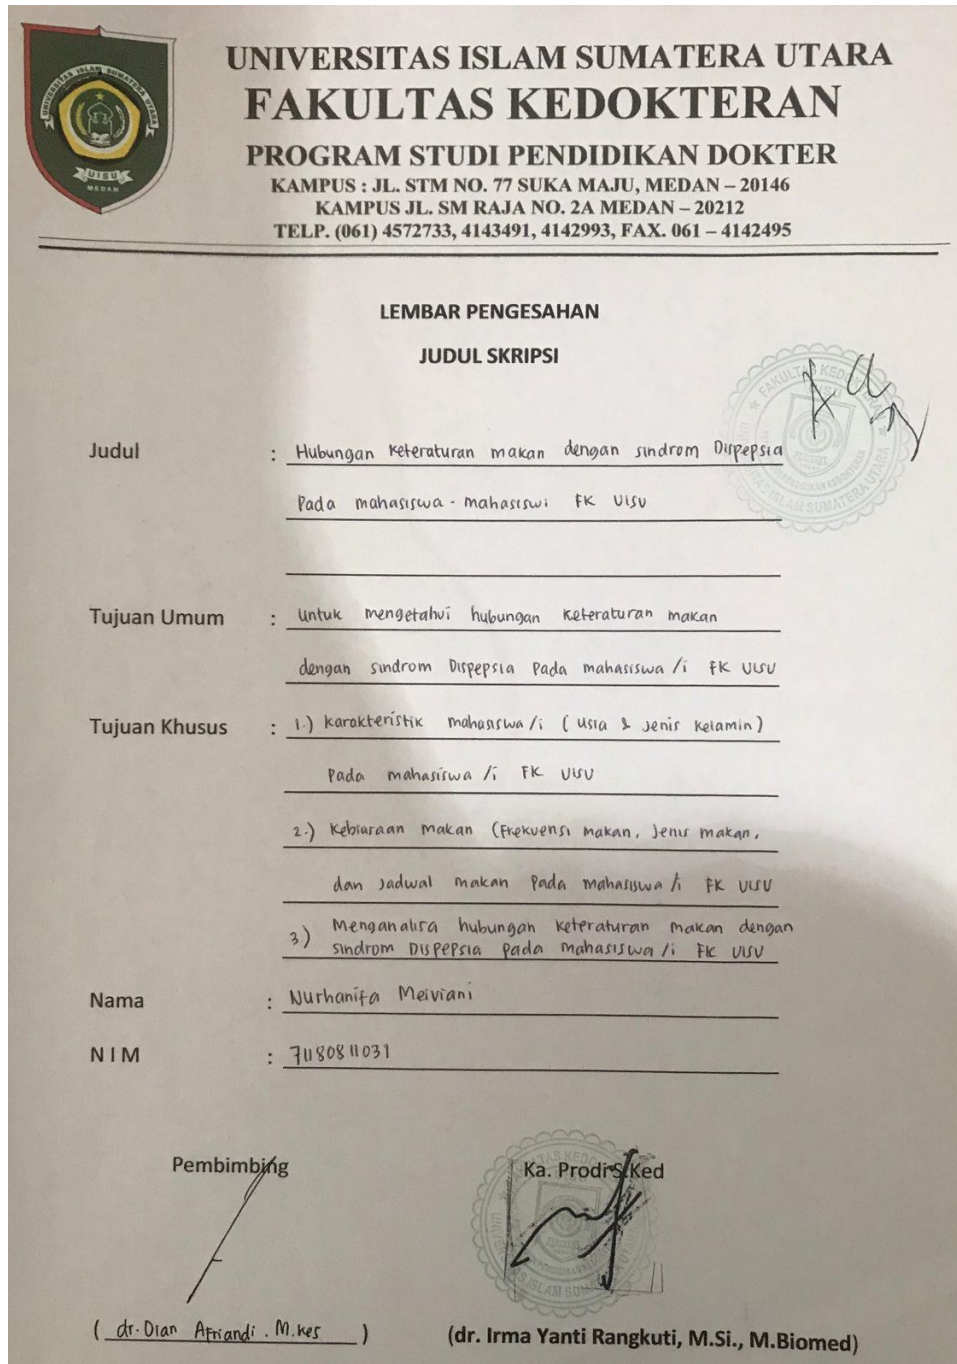 UNIVERSITAS ISLAM SUMATERA UTARA
UISU
MEDAN
UNIVERSITAS ISLAM SUMATERA UTARA
FAKULTAS KEDOKTERAN
PROGRAM STUDI PENDIDIKAN DOKTER
KAMPUS : JL. STM NO. 77 SUKA MAJU, MEDAN – 20146
KAMPUS JL. SM RAJA NO. 2A MEDAN – 20212
TELP. (061) 4572733, 4143491, 4142993, FAX. 061 – 4142495
LEMBAR PENGESAHAN
JUDUL SKRIPSI
Judul : Hubungan keteraturan makan dengan sindrom Dispepsia
Pada mahasiswa - mahasiswi FK UISU
Tujuan Umum : Untuk mengetahui hubungan keteraturan makan
dengan sindrom Dispepsia Pada mahasiswa /i FK UISU
Tujuan Khusus : 1.) Karakteristik mahasiswa /i ( usia & Jenis Kelamin )
Pada mahasiswa /i FK UISU
2.) Kebiasaan makan (Frekuensi makan, Jenis makan,
dan Jadwal makan Pada mahasiswa /i FK UISU
3.) Menganalisa hubungan keteraturan makan dengan
sindrom Dispepsia pada mahasiswa /i FK UISU
Nama : Nurhanifa Meiviani
N I M : 71180811031
Pembimbing
Ka. Prodi S.Ked
( dr. Dian Afriandi . M.kes )
(dr. Irma Yanti Rangkuti, M.Si., M.Biomed)